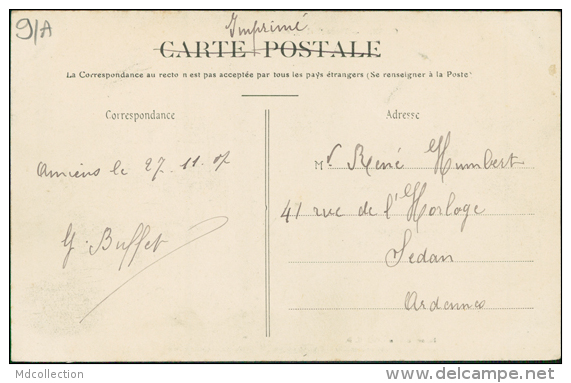 9/A
Imprimé
CARTE POSTALE
La Correspondance au recto n'est pas acceptée par tous les pays étrangers (Se renseigner à la Poste)
Correspondance
Adresse
Amiens le 27.11.07
Mr René Humbert
41 rue de l'Horloge
G. Buffet
Sedan
Ardennes
Mdcollection
www.delcampe.net